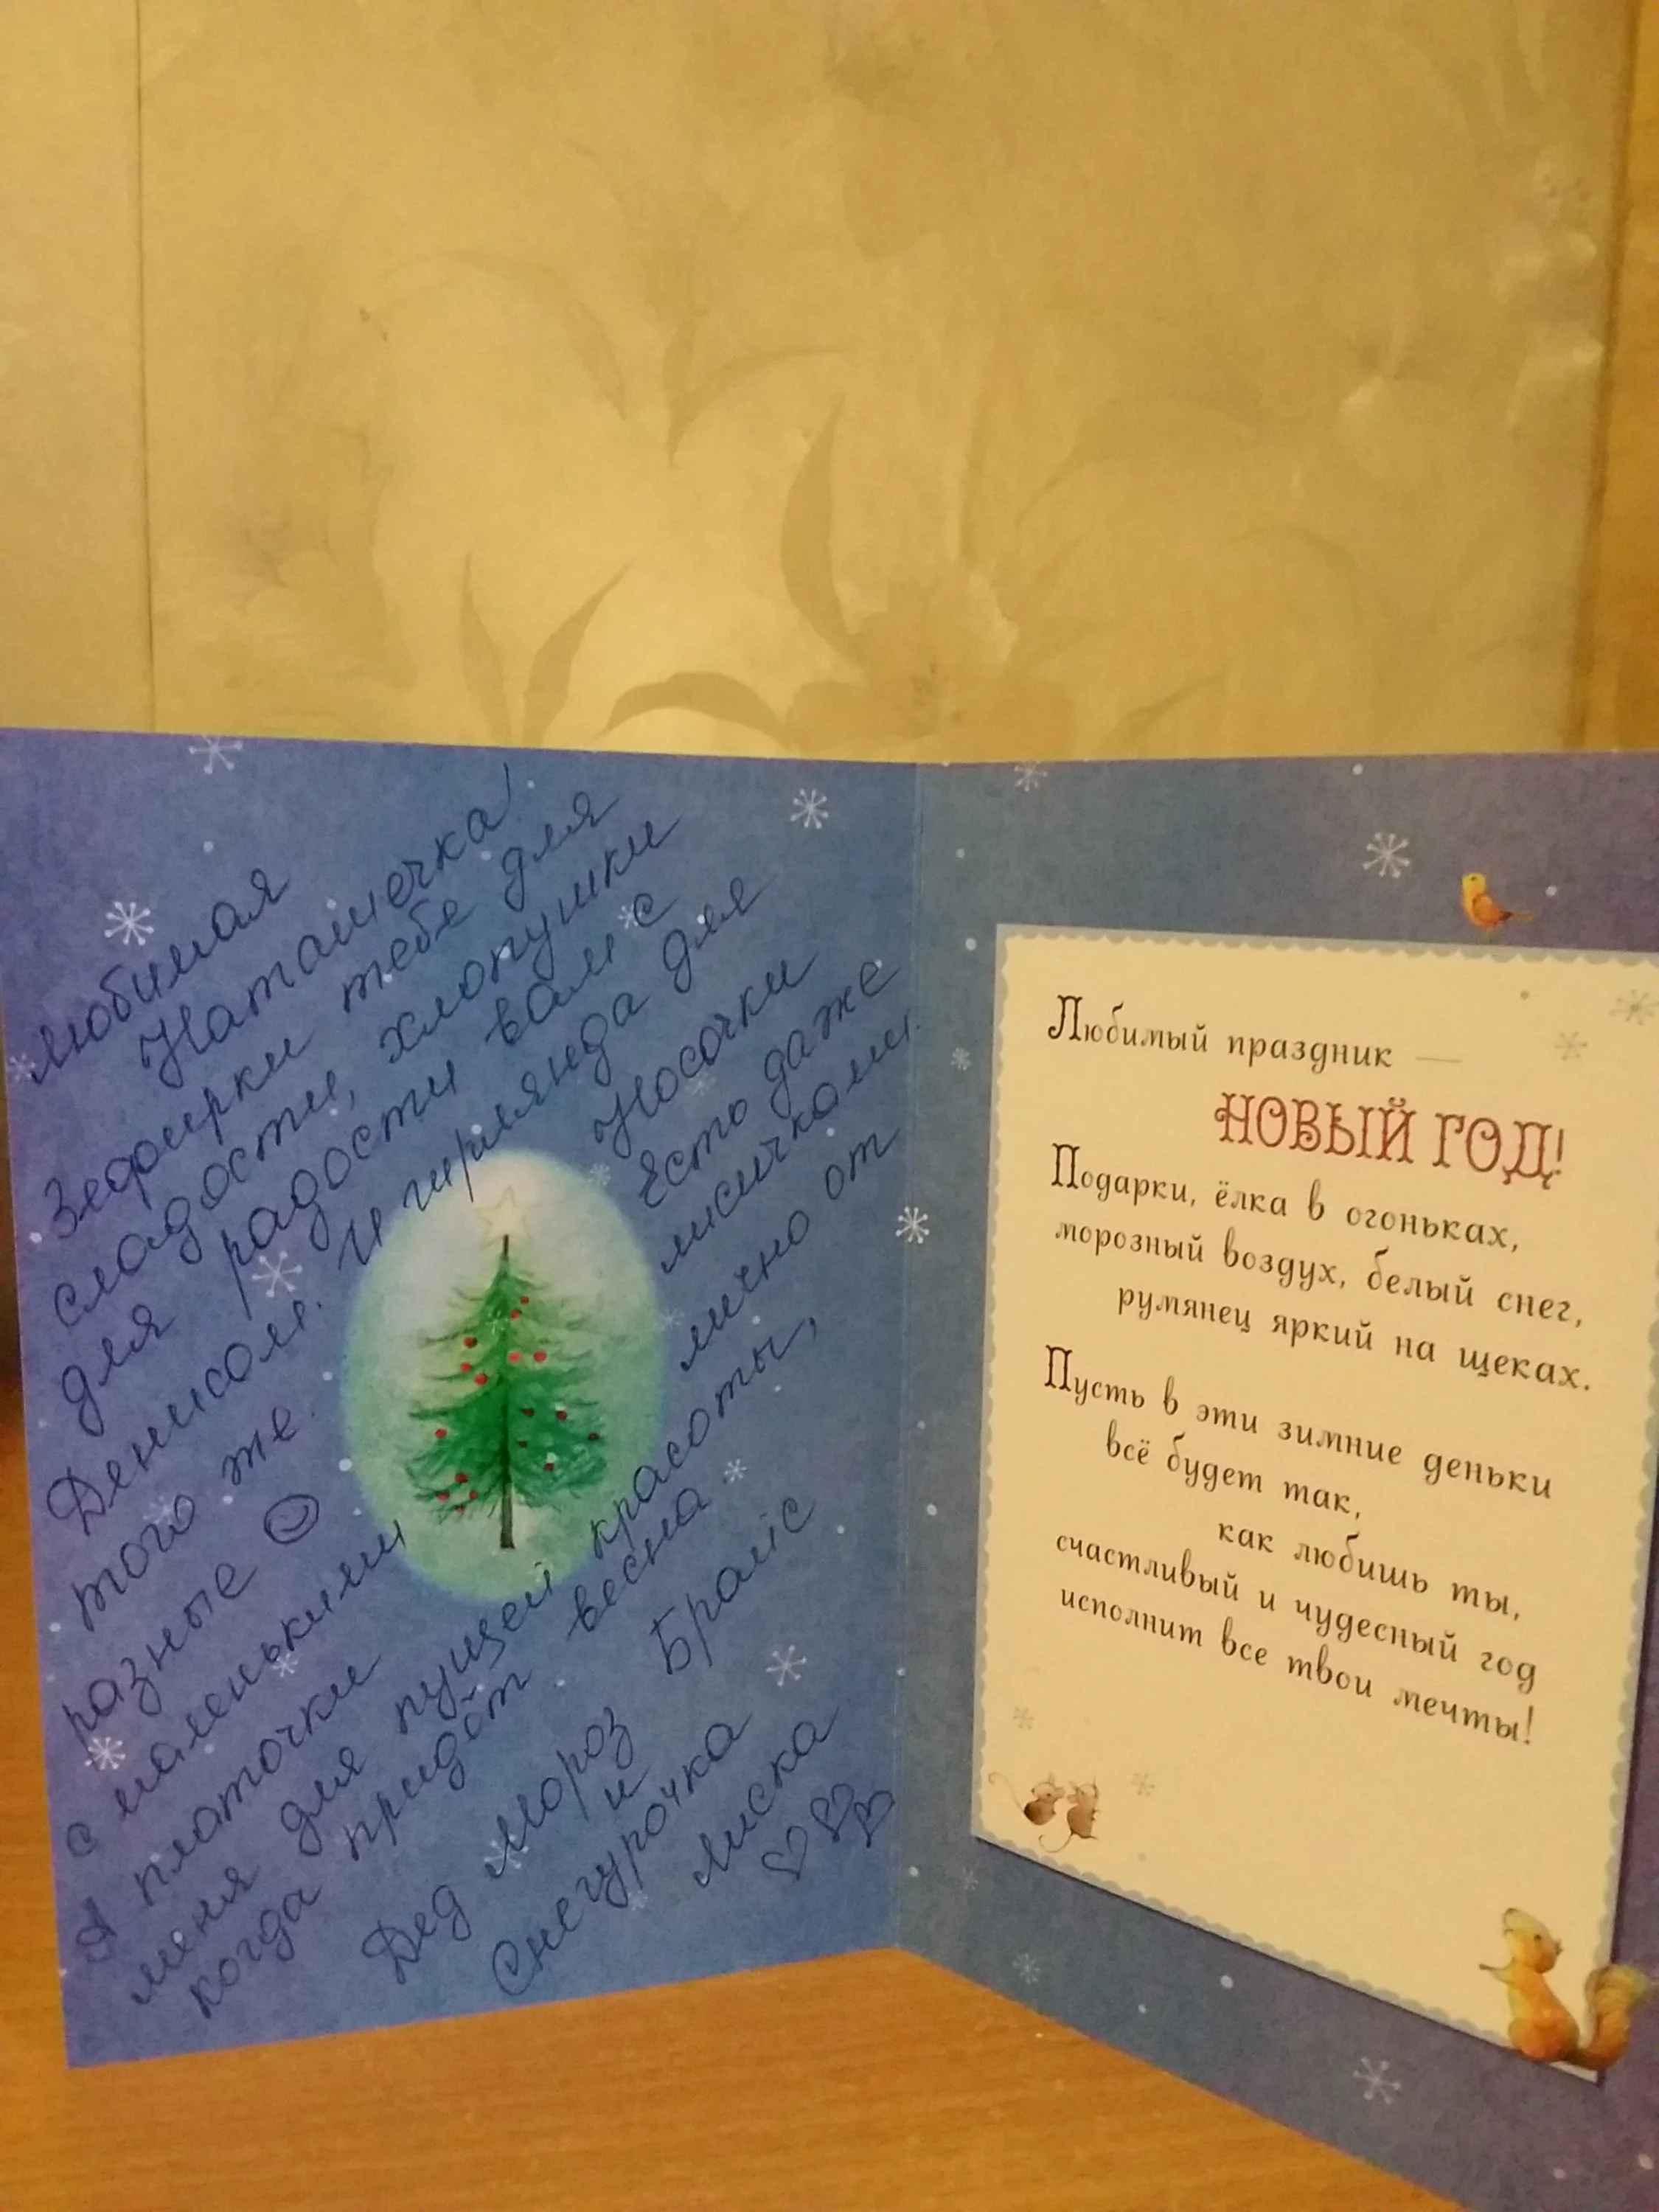 Любимая
Наташечка!
Зефирки тебе для
сладости, хлопушки
для радости вам с
Денисом. И гирлянда для
того же. Носочки
разные Есть даже
с маленькими лисичками.
А платочки лично от
меня для пущей красоты,
когда придёт весна.
Дед Мороз
и
Снегурочка
Лиска
Любимый праздник —
НОВЫЙ ГОД!
Подарки, ёлка в огоньках,
морозный воздух, белый снег,
румянец яркий на щеках.
Пусть в эти зимние деньки
всё будет так,
как любишь ты,
счастливый и чудесный год
исполнит все твои мечты!